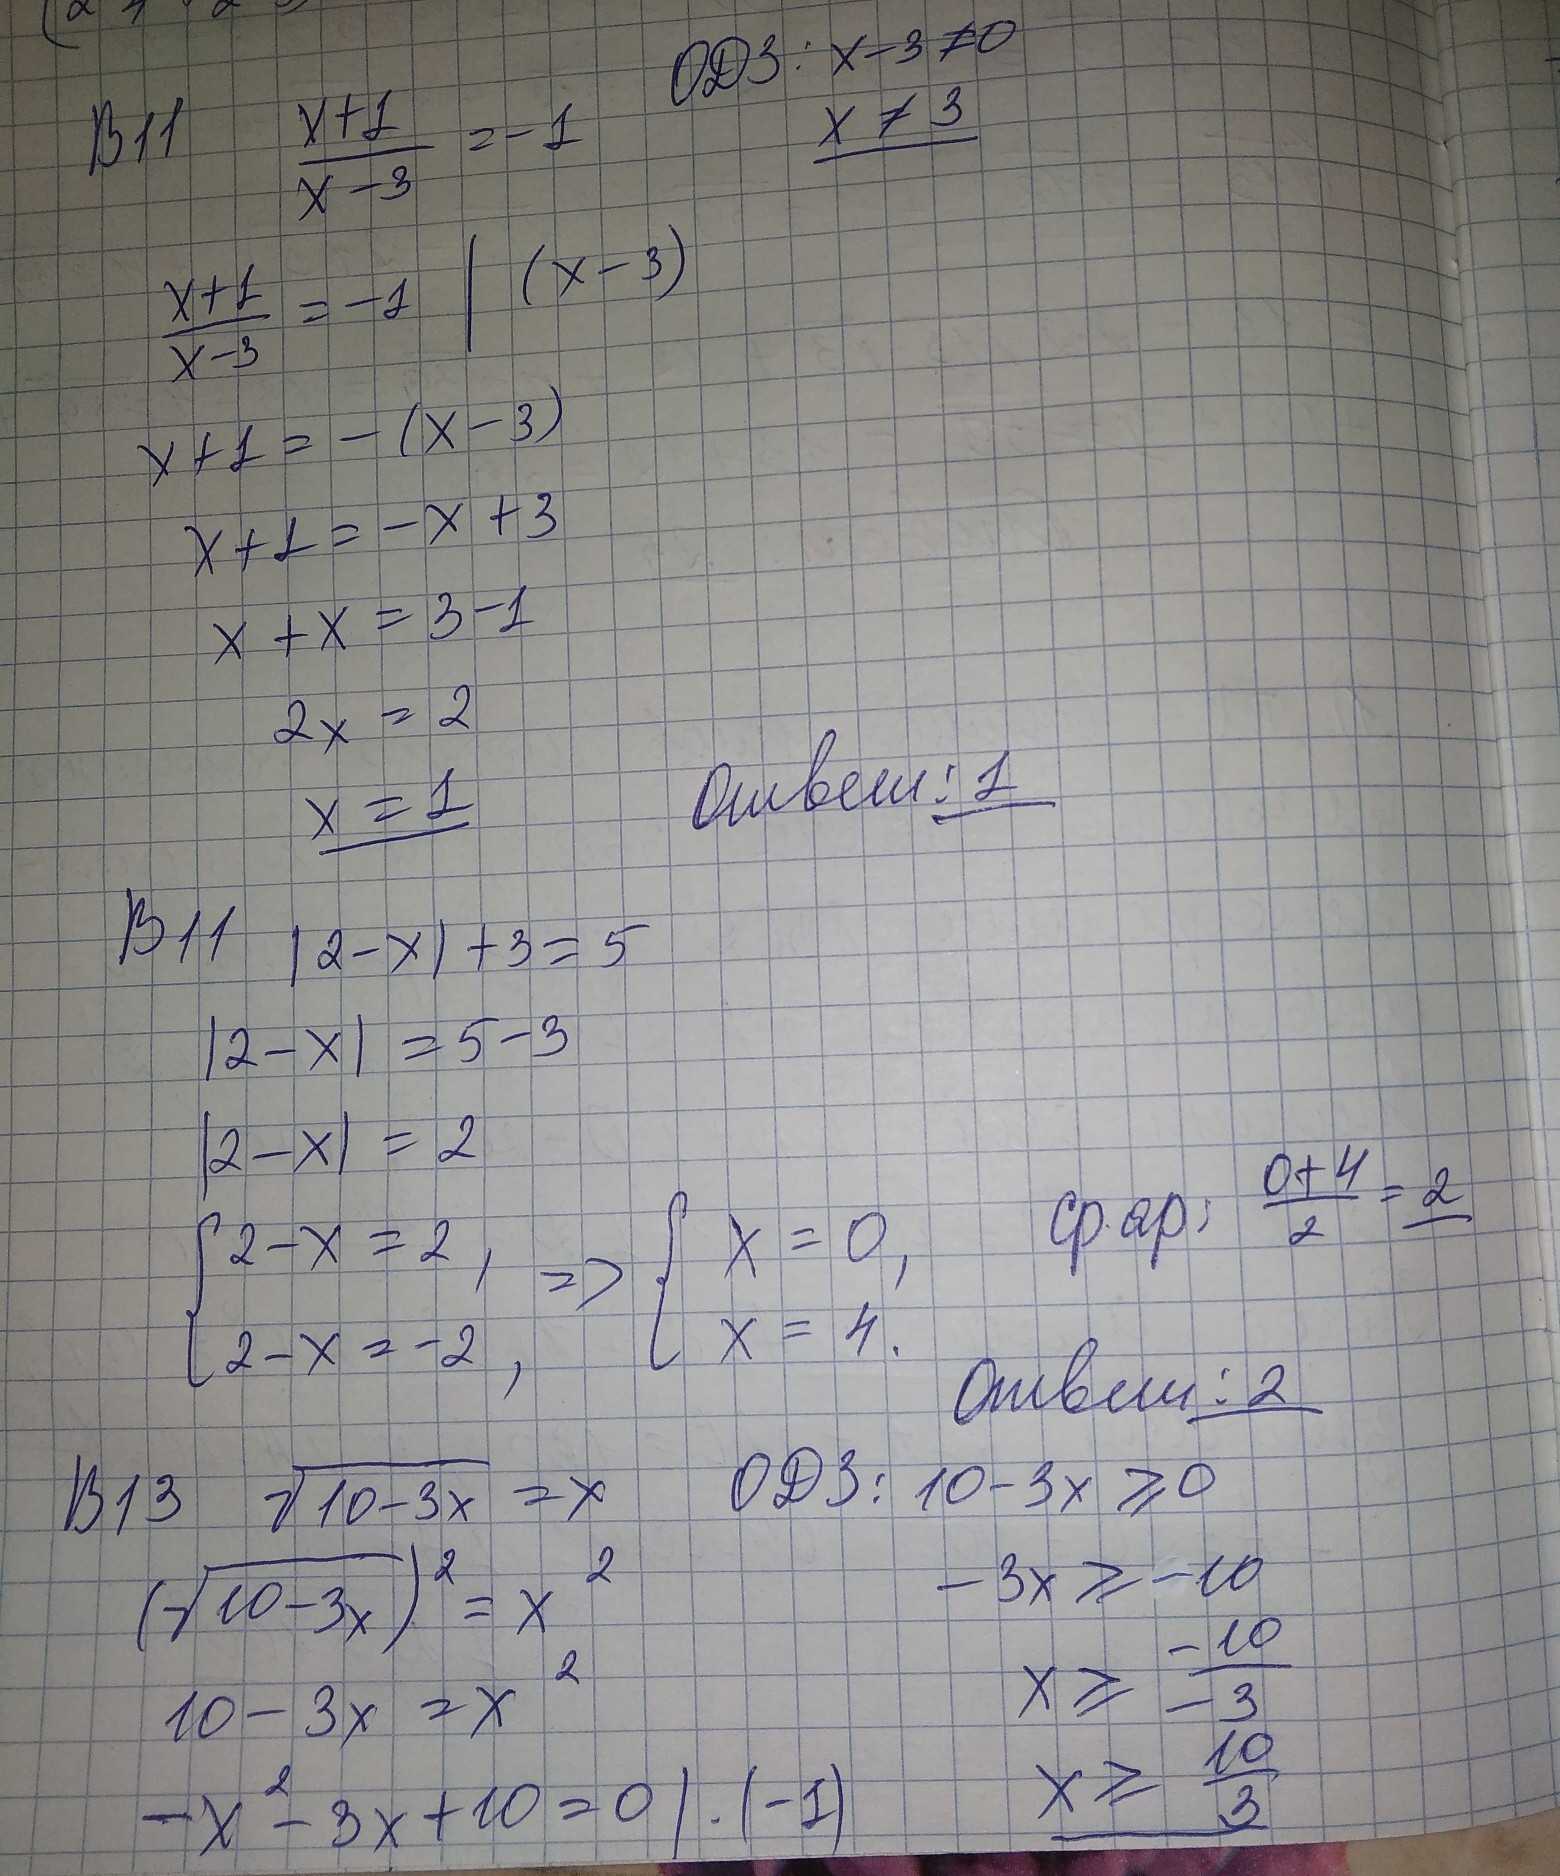 В11 x+1/x-3 = -1 ОДЗ: x-3≠0
x ≠ 3
x+1/x-3 = -1 | (x-3)
x+1 = -(x-3)
x+1 = -x+3
x+x = 3-1
2x = 2
x = 1 Ответ: 1
В11 |2-x|+3=5
|2-x| = 5-3
|2-x| = 2
{2-x = 2, => {x = 0, Ср.ар: 0+4/2 = 2
2-x = -2, x = 4.
Ответ: 2
В13 √10-3x = x ОДЗ: 10-3x ⩾ 0
(√10-3x)² = x² -3x ⩾ -10
10-3x = x² x ⩾ -10/-3
-x²-3x+10=0 | ·(-1) x ⩾ 10/3